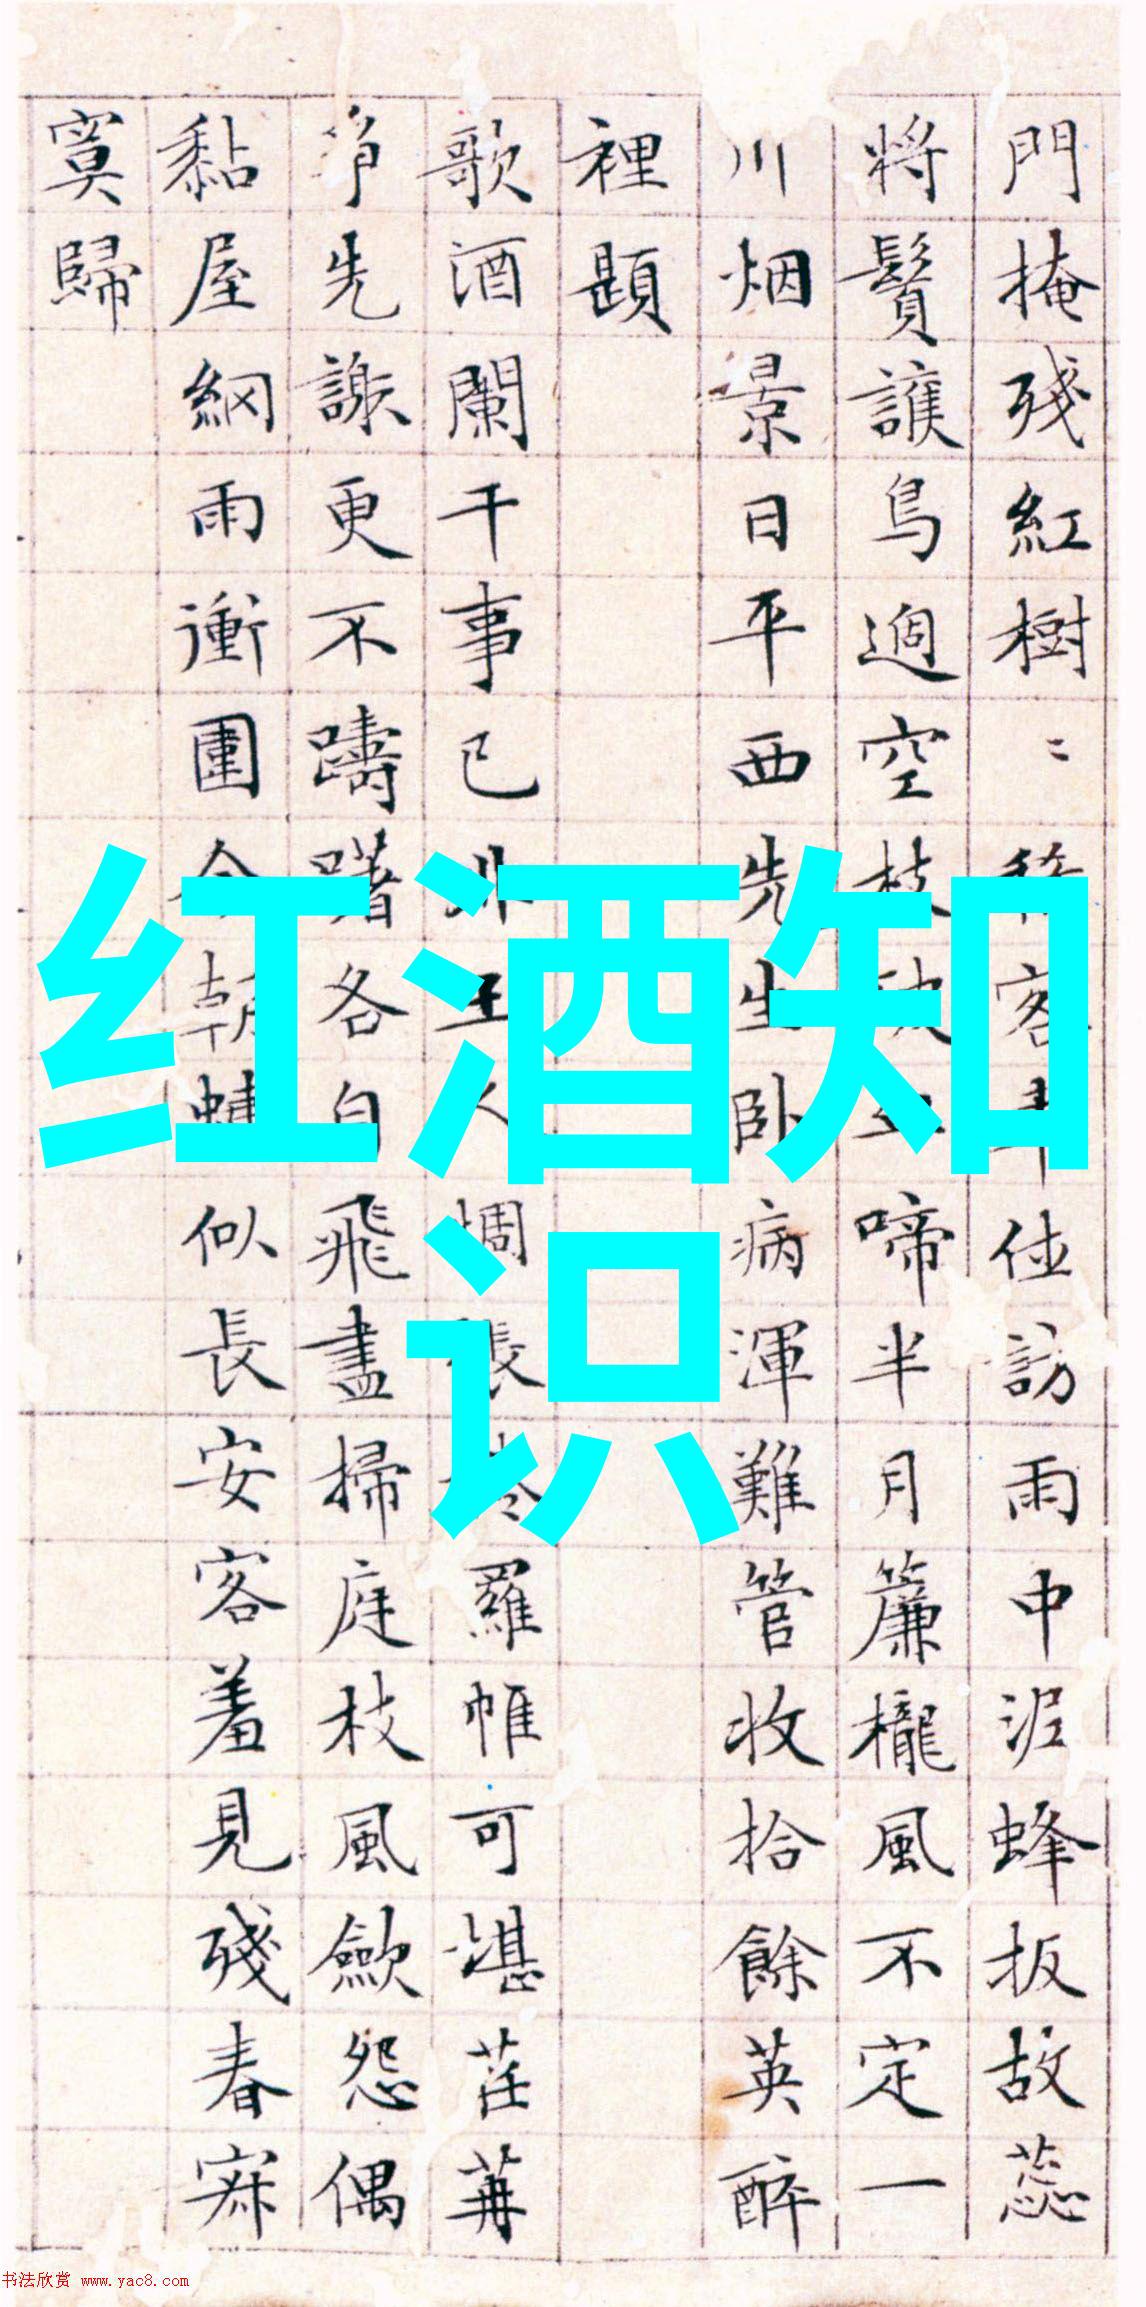 門掩殘紅樹〻 客 位訪雨中泥蜂扳故蕊
將鬢護鳥過空枝 啼半月簾櫳風不定一
川烟景日平西先生卧病渾難管收拾餘英醉
裡題
歌酒闌干事已非主人惆悵 羅帷可堪荏苒
爭先謝更不躊躇各自飛盡掃庭枝風斂怨偶
黏屋網雨衝圍今朝 似長安客羞見殘春寂
寞歸
红酒知
识
书法欣赏 www.yac8.com